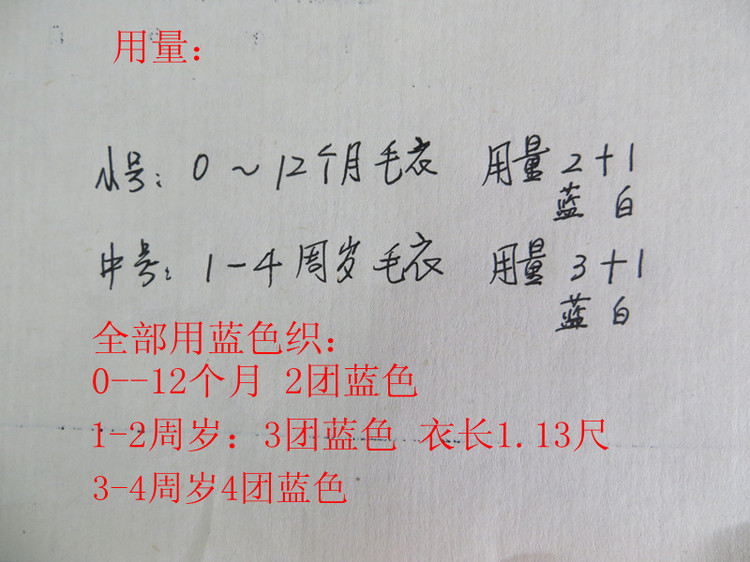 用量：
小号：0～12个月毛衣 用量2+1
蓝 白
中号：1-4周岁毛衣 用量3+1
蓝 白
全部用蓝色织：
0--12个月 2团蓝色
1-2周岁：3团蓝色 衣长1.13尺
3-4周岁4团蓝色